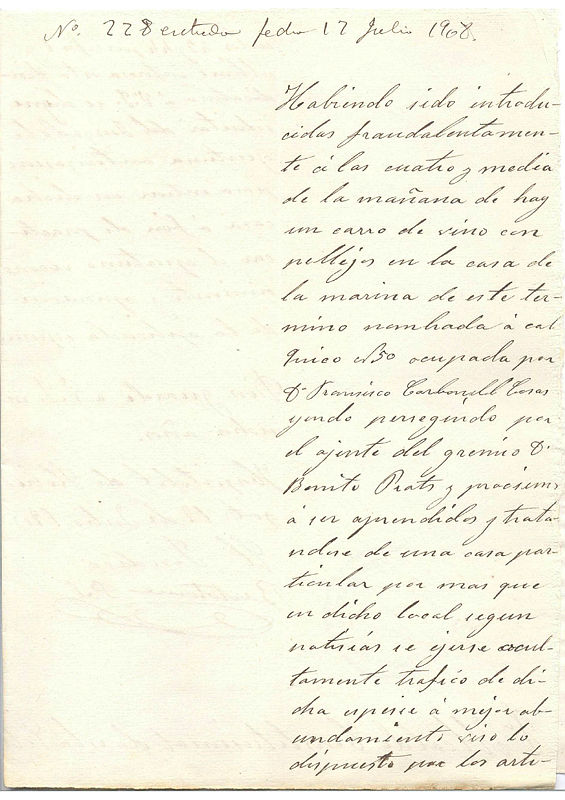 No. 228 entrada fecha 12 Julio 1908.
Habiendo sido introdu-
cidas fraudalentamen-
te á las cuatro y media
de la mañana de hoy
un carro de vino con
pellejos en la casa de
la marina de este ter-
mino nombrada á cal
Quico nº 50 ocupada por
Dn Francisco Carbonell Casas
yendo perseguido por
el ajente del gremio D.
Benito Prats y procsimo
á ser aprendidos y trata-
ndose de una casa par-
ticular por mas que
en dicho local segun
notisias se ejerse ocul-
tamente trafico de di-
cha espesie á mejor ab-
undamiento viso lo
dispuesto por los arti-